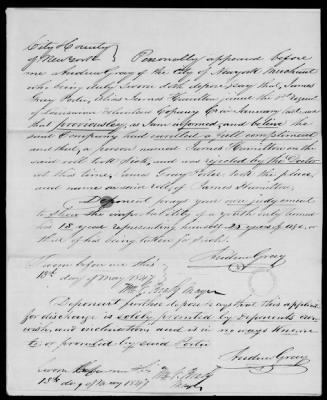 City & County
of New York
Personally appeared before
me Andrew Gray of the City of New York Merchant
who being duly sworn doth depose & say that, James
Gray Porter, alias James Hamilton joined the 1st regent
of Louisiana Volunteers Company G in January last
that previously, as I am informed, and believe the
said Company had enrolled a full compliment
and that, a person named James Hamilton on the
said roll took sick, and was rejected by the Doctor
at this time, James Gray Porter took the place,
and name on said roll of James Hamilton,
Deponent prays your own judgement
to the impossibility of a youth only turned
his 18 year representing himself 23 years of age, or
of his being taken for such.
Andrew Gray
Sworn before me this
13th day of May 1847
Mayor
Deponent further depose & says that this application
for discharge is solely promted by deponents own
wish, and inclination and is in no ways
or promted by said Porter
Andrew Gray
Sworn before me this
13th day of May 1847
Mayor